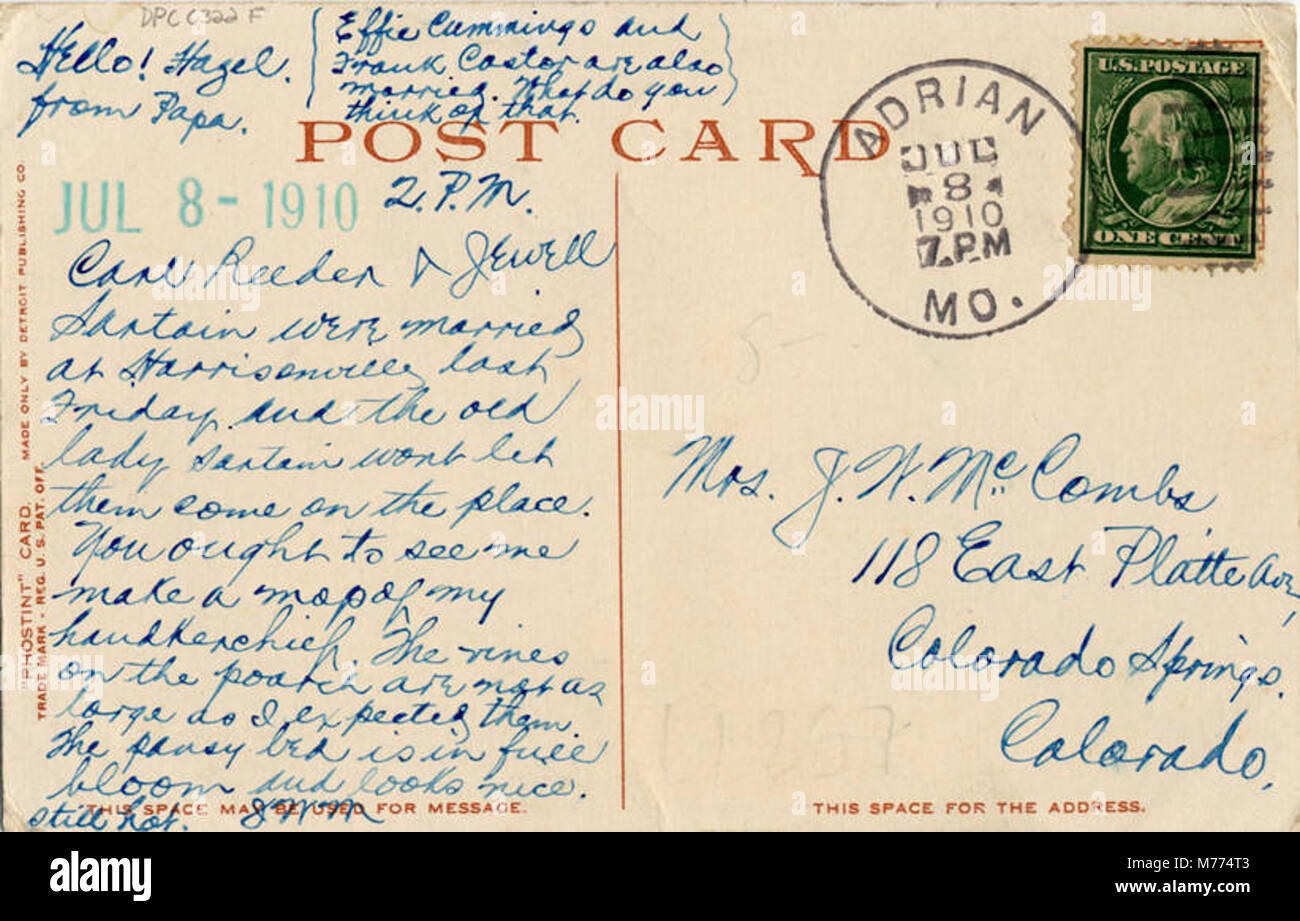 DPC C322 F
Hello! Hazel.
from Papa.
Effie Cummings and
Frank Castor are also
married. What do you
think of that.
POST CARD
ADRIAN
JUL
8
1910
7 PM
MO.
U.S. POSTAGE
ONE CENT
JUL 8 - 1910 2. P.M.
Carl Reeder & Jewell
Sartain were married
at Harrisonville last
Friday and the old
lady Sartain wont let
them come on the place.
You ought to see me
make a mop of my
handkerchief. The vines
on the poarch are not as
large as I expected them.
The pansy bed is in full
bloom and looks nice.
still hot. JWM
THIS SPACE MAY BE USED FOR MESSAGE.
"PHOSTINT" CARD. MADE ONLY BY DETROIT PUBLISHING CO.
TRADE MARK - REG. U.S. PAT. OFF.
Mrs. J. W. McCombs
118 East Platte Ave,
Colorado Springs.
Colorado.
THIS SPACE FOR THE ADDRESS.
alamy
alamy
Image ID: M774T3
www.alamy.com